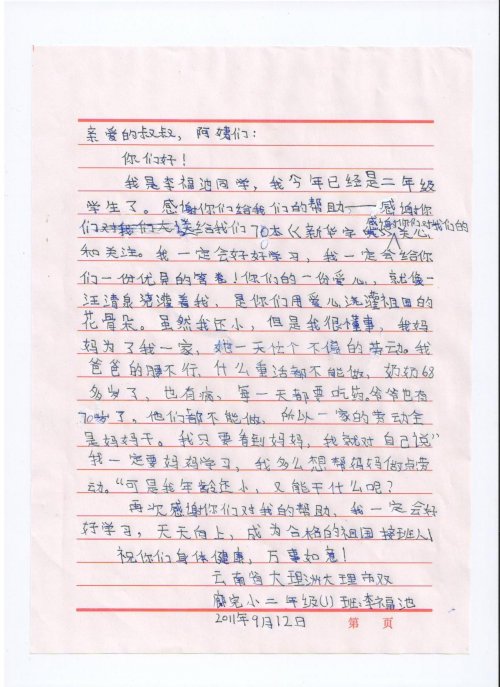 亲爱的叔叔，阿姨们：
你们好！
我是李福池同学，我今年已经是二年级
学生了。感谢你们给我们的帮助，感谢你
们对我们大送给我们70本《新华字典》感谢你们对我们的关心
和关注。我一定会好好学习，我一定会给你
们一份优良的答卷！你们的一份爱心，就像一
汪清泉浇灌着我，是你们用爱心浇灌祖国的
花骨朵。虽然我还小，但是我很懂事，我妈
妈为了我一家，她一天忙个不停的劳动。我
爸爸的腰不行，什么重活都不能做，奶奶68
多岁了，也有病，每一天都要吃药。爷爷也有
70岁了。他们都不能做，所以一家的劳动全
是妈妈干。我只要看到妈妈，我就对自己说"
我一定要妈妈学习，我多么想帮妈妈做点劳
动。"可是我年龄还小，又能干什么呢？
再次感谢你们对我的帮助，我一定会好
好学习，天天向上，成为合格的祖国接班人！
祝你们身体健康，万事如意！
云南省大理洲大理市双
廊完小二年级(1)班：李福池
2011年9月12日
第 页